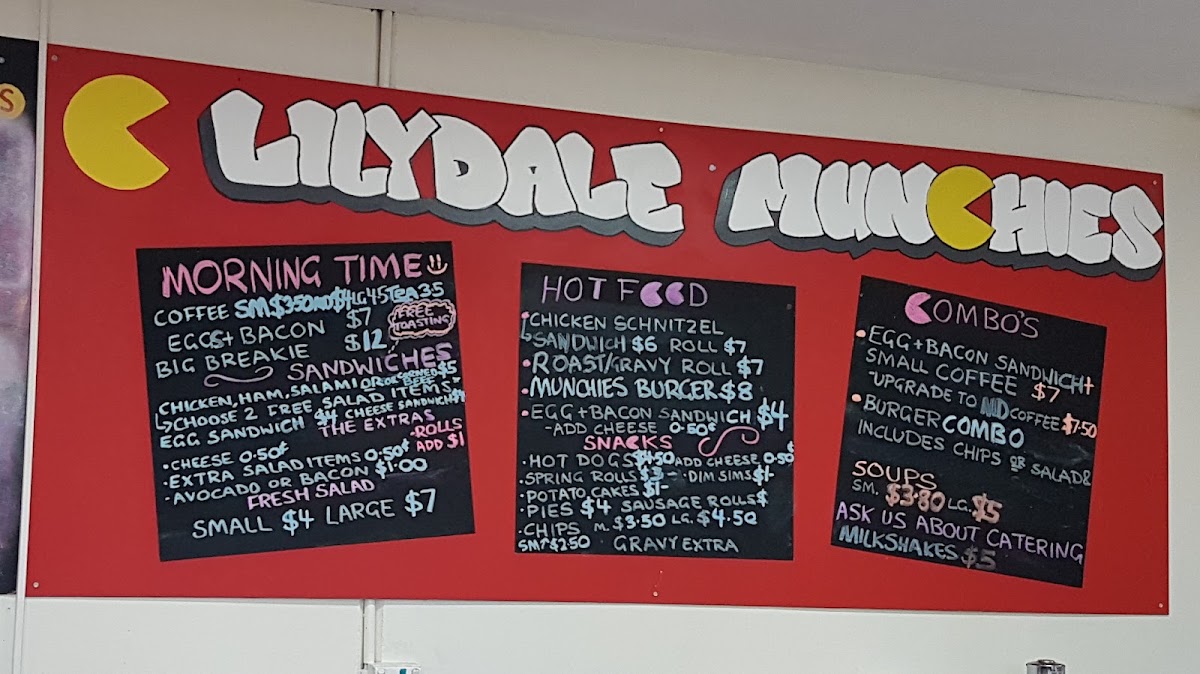 S
LILYDALE MUNCHIES
MORNING TIME
COFFEE SM.$3.50 MD $4 LG 4.5 TEA 3.5
EGGS+BACON $7
FREE TOASTING
BIG BREAKIE $12
SANDWICHES
CHICKEN, HAM, SALAMI OR CORNED BEEF $5
CHOOSE 2 FREE SALAD ITEMS
EGG SANDWICH $4 CHEESE SANDWICH
THE EXTRAS
·CHEESE 0.50¢
-ROLLS ADD $1
·EXTRA SALAD ITEMS 0.50¢
·AVOCADO OR BACON $1.00
FRESH SALAD
SMALL $4 LARGE $7
HOT FOOD
CHICKEN SCHNITZEL
SANDWICH $6 ROLL $7
·ROAST/GRAVY ROLL $7
·MUNCHIES BURGER $8
·EGG+BACON SANDWICH $4
-ADD CHEESE 0.50¢
SNACKS
·HOT DOGS $4.50 ADD CHEESE 0.50¢
·SPRING ROLLS $3 ·DIM SIMS $1-
·POTATO CAKES $1-
·PIES $4 SAUSAGE ROLLS $
·CHIPS M.$3.50 LG.$4.50
SM $2.50 GRAVY EXTRA
COMBO'S
·EGG+BACON SANDWICH+
SMALL COFFEE $7
-UPGRADE TO MD COFFEE $7.50
·BURGER COMBO
INCLUDES CHIPS OR SALAD
SOUPS
SM. $3.80 LG. $5
ASK US ABOUT CATERING
MILKSHAKES $5